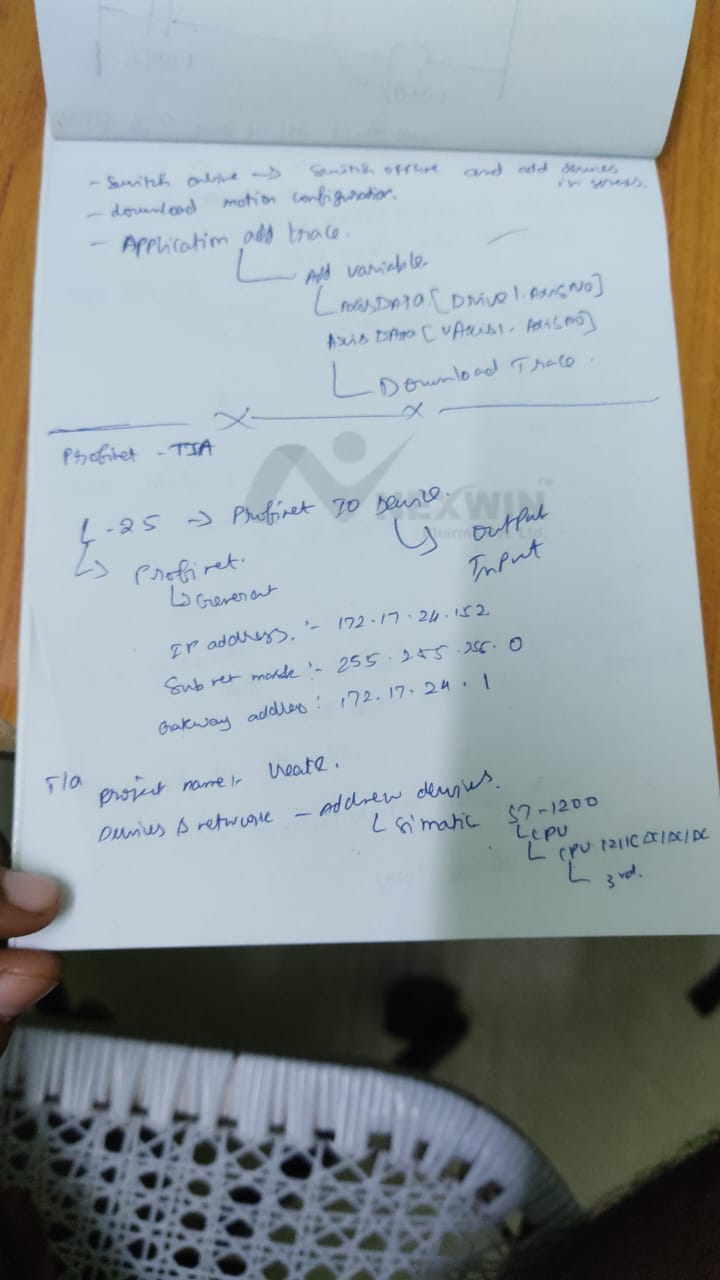 - Switch online → Switch offline and add devices
in sercos.
- download motion configuration.
- Application add trace.
Add variable
AxisDATA [Drive1.AxisNO]
Axis DATA [VAxis1. AxisNO]
Download Trace.
Profinet - TIA
NEXWIN
L-25 → Profinet IO Device.
Output
Input
Profinet.
General
IP address. :- 172.17.24.152
Subnet mask :- 255.255.255.0
Gateway address : 172.17.24.1
TIA Project name :- Create.
Devices & network - Add new devices.
Simatic S7-1200
CPU
CPU 1211C DC/DC/DC
3rd.